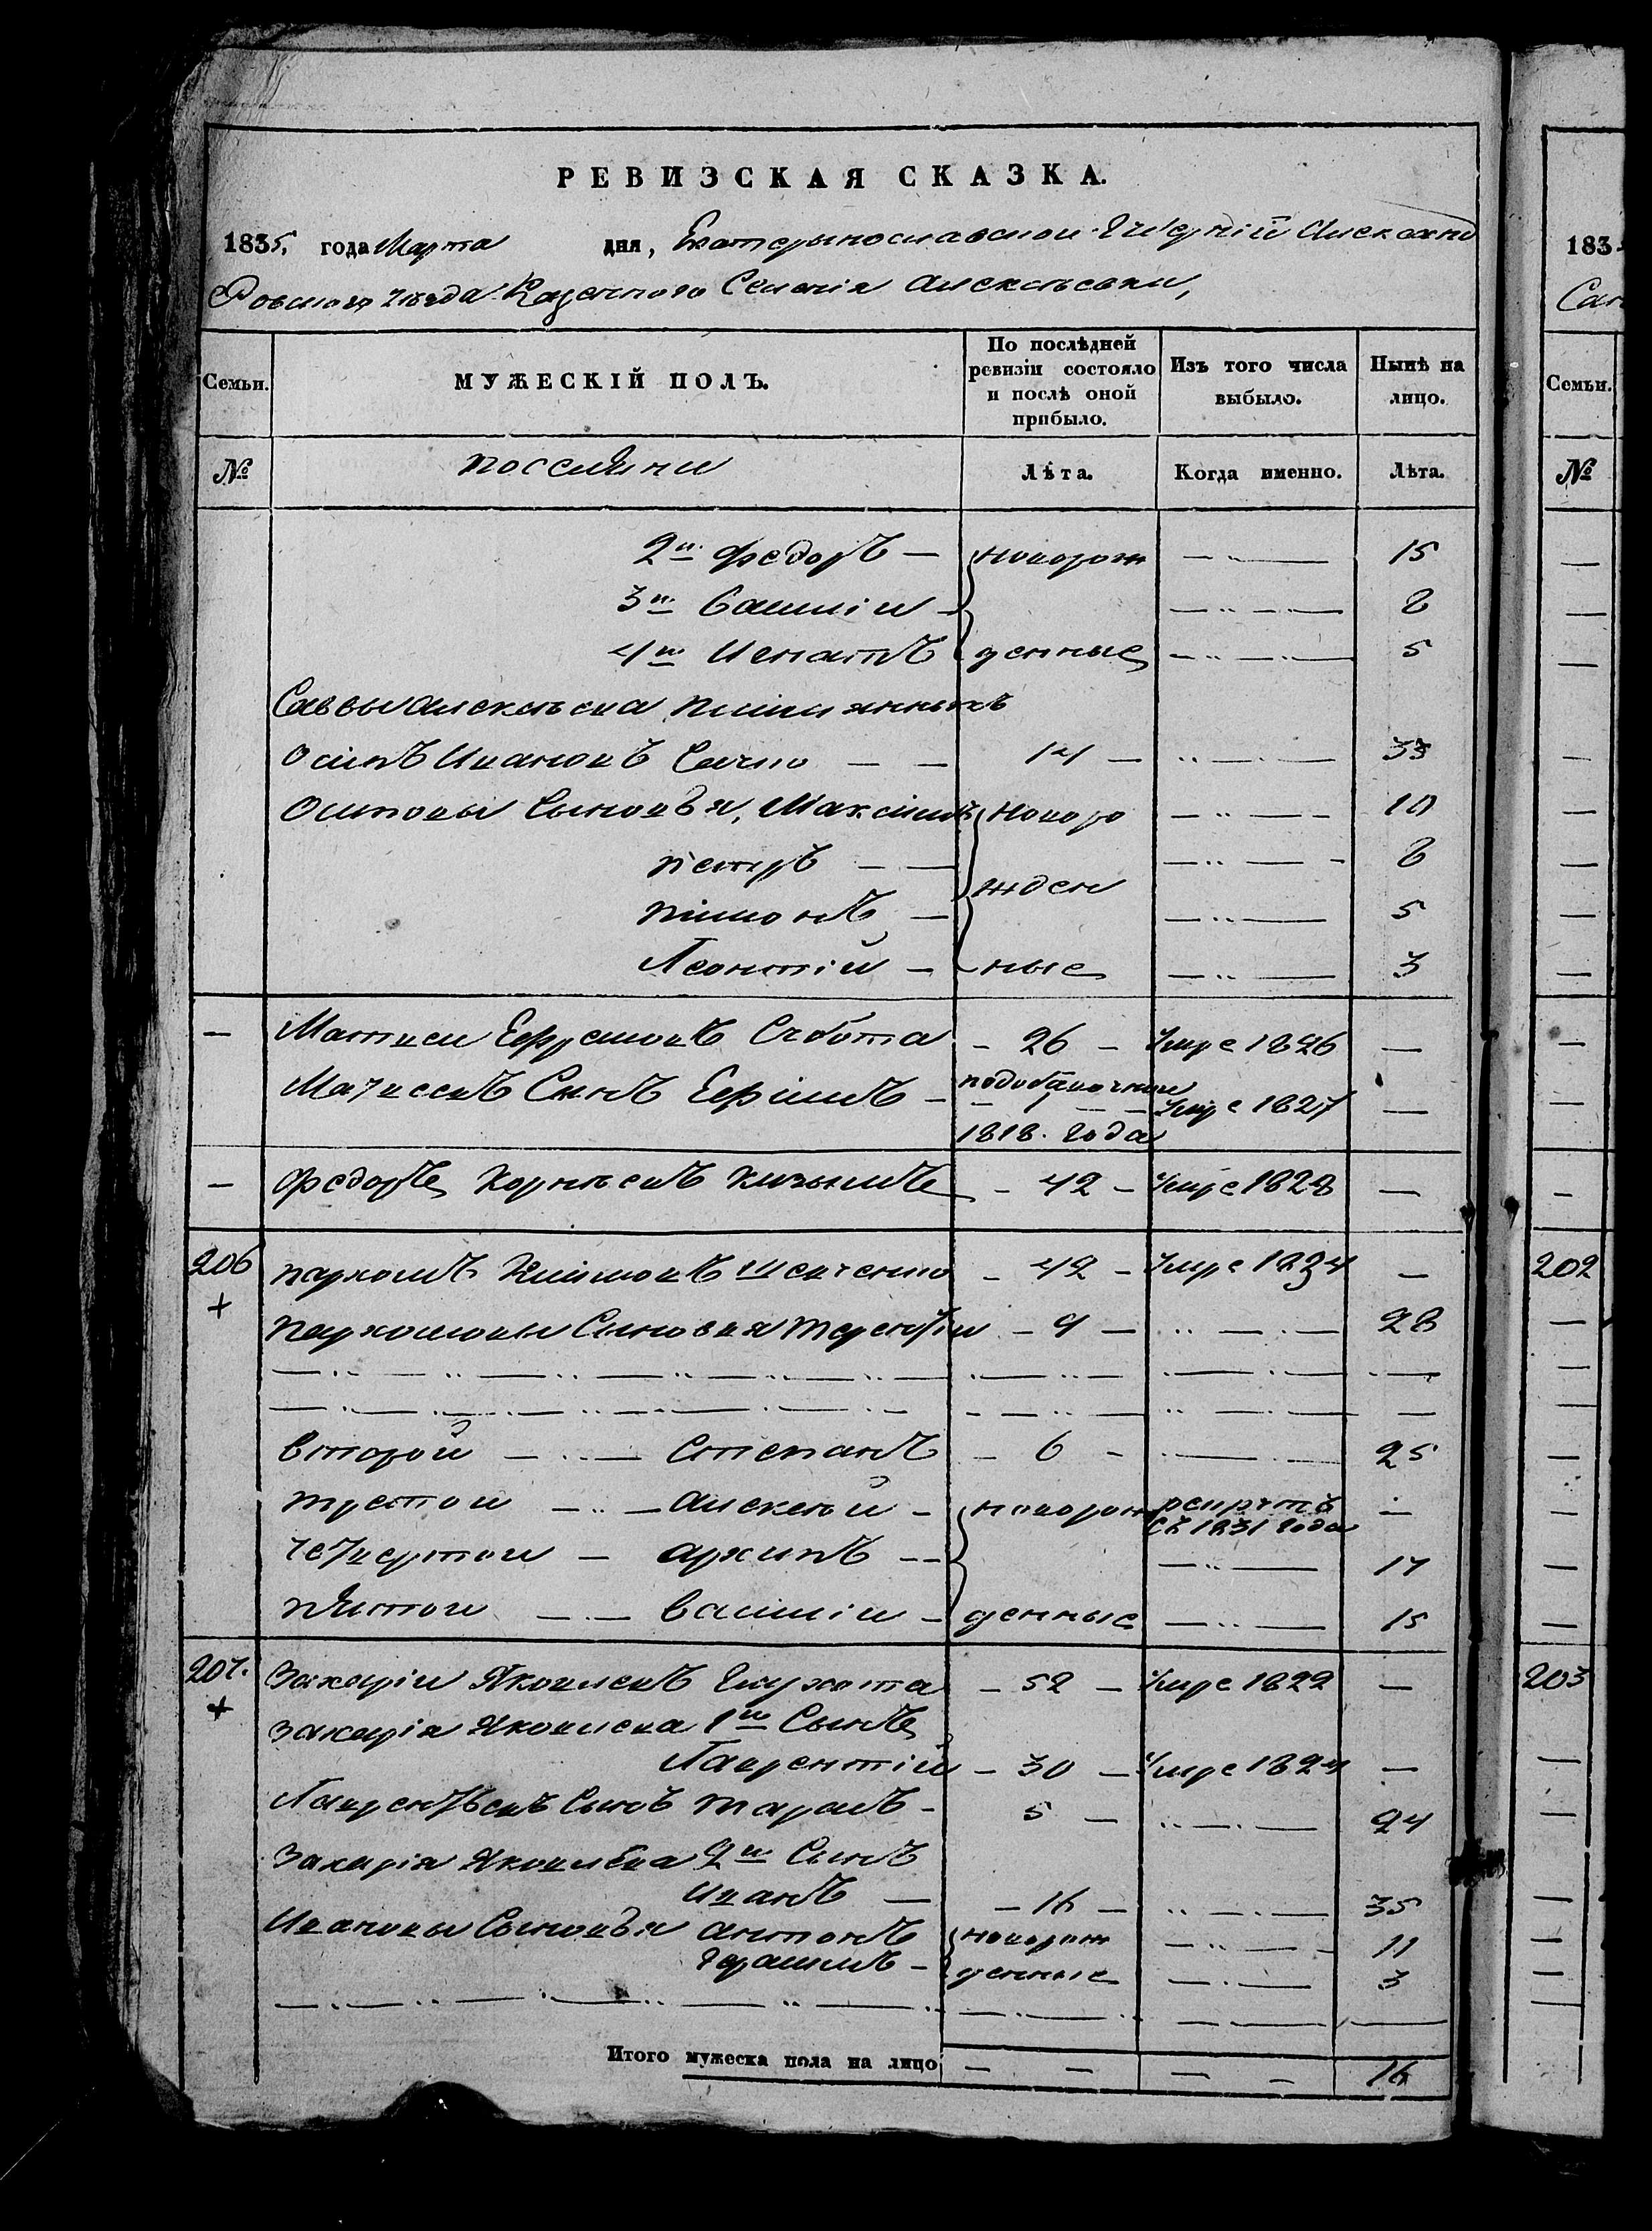 РЕВИЗСКАЯ СКАЗКА.
1835, года Марта дня, Екатеринославской Губерніи Александ
Ровского уезда Казенного Селенія Алексеевки,
Семьи. МУЖЕСКІЙ ПОЛЪ. По послѣдней ревизіи состояло и послѣ оной прибыло. Изъ того числа выбыло. Нынѣ на лицо.
№ поселяни Лѣта. Когда именно. Лѣта.
2й Федоръ — новорож — 15
3й Василіи — 8
4й Игнатъ денные — 5
Саввы Алексеева племянникъ
Осипъ Ивановъ — 14 — 33
Осиповы Сыновья, Максимъ новоро — 10
Петръ — 8
жден
Тимонъ — 5
Леонтій — ные — 3
— Матвеи Ефремовъ Субота — 26 — Умре 1826 —
Матвеевъ Сынъ Ефимъ — 1 — Умре 1827 —
1818. года
— Федоръ Корнеевъ — 42 — Умре 1828 —
206 Пархомъ Климовъ Шевченко — 42 — Умре 1834 —
+
Пархомовы Сыновья Терентіи — 9 — 28
второй — Степанъ — 6 — 25
третои — Алексей — новорож рекрутъ —
съ 1831 года
Четвертои — Архипъ — 17
пятои — Василіи — денные — 15
207. Захаріи Яковлевъ Глухота — 52 — Умре 1822 —
+
Захарія Яковлева 1й Сынъ
Лаврентій — 30 — Умре 1824 —
Лаврентьевъ Сынъ Тарасъ — 5 — 24
Захарія Яковлева 2й Сынъ
Иванъ — 16 — 35
Ивановы Сыновья Антонъ новорож — 11
Герасимъ — денные — 3
Итого мужеска пола на лицо — — — — 16
183
Семьи.
№
202
203